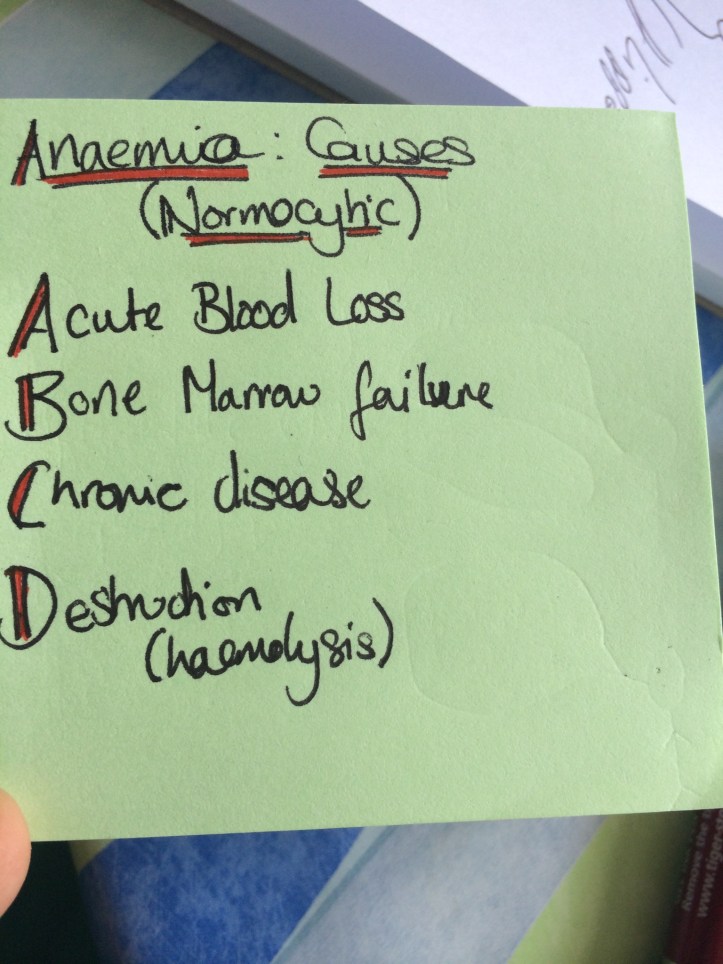 Anaemia: Causes
(Normocytic)
Acute Blood Loss
Bone Marrow failure
Chronic disease
Destruction
(haemolysis)